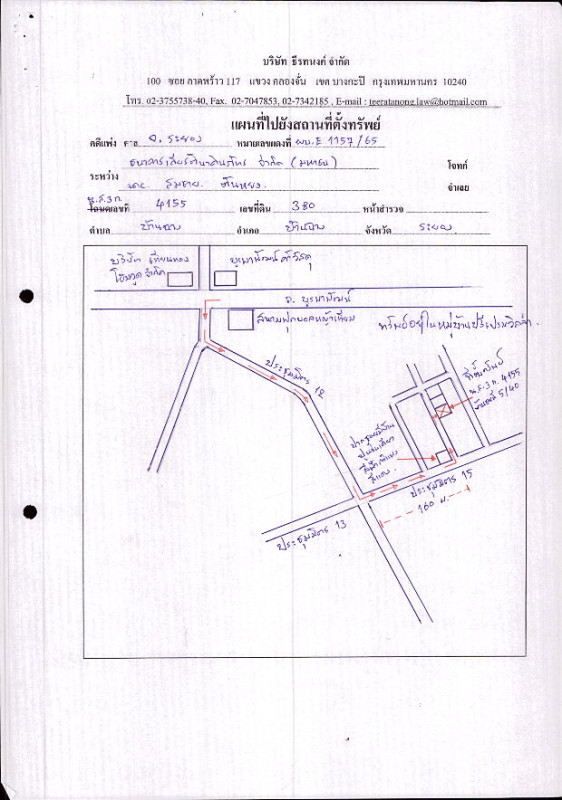 บริษัท ธีรทนงค์ จำกัด
100 ซอย ลาดพร้าว 117 แขวง คลองจั่น เขต บางกะปี กรุงเทพมหานคร 10240
โทร. 02-3755738-40, Fax. 02-7047853, 02-7342185 , E-mail : teeratanong.law@hotmail.com
แผนที่ไปยังสถานที่ตั้งทรัพย์
คดีแพ่ง ศาล จ. ระยอง หมายเลขแดงที่ ผบ.E 1157/65
ธนาคารเกียรตินาคินภัทร จำกัด (มหาชน) โจทก์
ระหว่าง
นาย สมชาย ต้นหยง จำเลย
น.ส.3 ก.
โฉนดเลขที่ 4155 เลขที่ดิน 380 หน้าสำรวจ
ตำบล บ้านฉาง อำเภอ บ้านฉาง จังหวัด ระยอง
บริษัท เทียนทอง
จำกัด
บูรพาพัฒน์ ค้าวัสดุ
ถ. บูรพาพัฒน์
สนามฟุตบอลหญ้าเทียม
ทรัพย์อยู่ในหมู่บ้าน
ประชุมมิตร 12
ที่ตั้งทรัพย์
น.ส.3 ก. 4155
บ้านเลขที่ 5/40
ประชุมมิตร 15
160 ม.
ประชุมมิตร 13